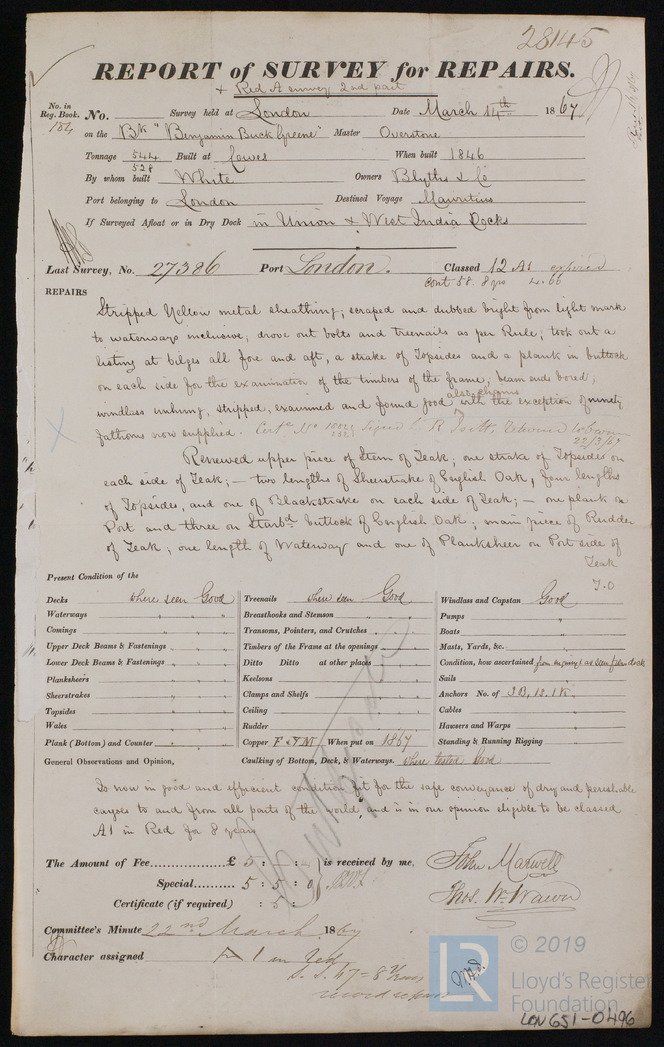 28145
REPORT of SURVEY for REPAIRS.
+ Red A survey 2nd part
No. in Reg. Book. 184 No. Survey held at London Date March 14th 1867
on the Bk "Benjamin Buck Greene" Master Overstone
Tonnage 544 Built at Cowes When built 1846
528
By whom built White Owners Blyths & Co
Port belonging to London Destined Voyage Mauritius
If Surveyed Afloat or in Dry Dock in Union & West India Docks
Last Survey, No. 27386 Port London. Classed 12 A1 expired
Cont 58. 8 yrs 4.66
REPAIRS
Stripped Yellow metal sheathing; scraped and dubbed bright from light mark
to waterways inclusive, drove out bolts and treenails as per Rule; took out a
listing at bilges all fore and aft, a strake of Topsides and a plank in buttock
on each side for the examination of the timbers of the frame, beam ends bored,
windlass unhung, stripped, examined and found good also chains with the exception of ninety
fathoms now supplied. Certe No signed
22/3/67
Renewed upper piece of Stem of Teak; one strake of Topsides on
each side of Teak; - two lengths of Sheerstrake of English Oak, four lengths
of Topsides, and one of Blackstrake on each side of Teak; - one plank on
Port and three on Starbd buttock of English Oak; main piece of Rudder
of Teak; one length of Waterway and one of Planksheer on Port side of
Teak
T.O
Present Condition of the
Decks where seen Good Treenails where seen Good Windlass and Capstan Good
Waterways " " Breasthooks and Stemson " Pumps "
Comings " " Transoms, Pointers, and Crutches " Boats "
Upper Deck Beams & Fastenings " " Timbers of the Frame at the openings " Masts, Yards, &c. "
Lower Deck Beams & Fastenings " " Ditto Ditto at other places " Condition, how ascertained from inquiry & as seen from deck
Planksheers " " Keelsons " Sails "
Sheerstrakes " " Clamps and Shelfs " Anchors No. of 3B, 1S, 1K.
Topsides " " Ceiling " Cables "
Wales " " Rudder " Hawsers and Warps "
Plank (Bottom) and Counter " " Copper F & Y M When put on 1867 Standing & Running Rigging "
General Observations and Opinion, Caulking of Bottom, Deck, & Waterways. where tested Good
Is now in good and efficient condition fit for the safe conveyance of dry and perishable
cargoes to and from all parts of the world, and is in our opinion eligible to be classed
A1 in Red for 8 years
The Amount of Fee £ 5 : - : - is received by me, John Maxwell
Special 5 : 5 : 0 Thos. Wm Wawn
Certificate (if required) : 5 :
Committee's Minute 22nd March 1867
Character assigned A 1 in Red
S. S. 67 = 8 Years
record repairs
© 2019
LR Lloyd's Register
Foundation
LON651-0496